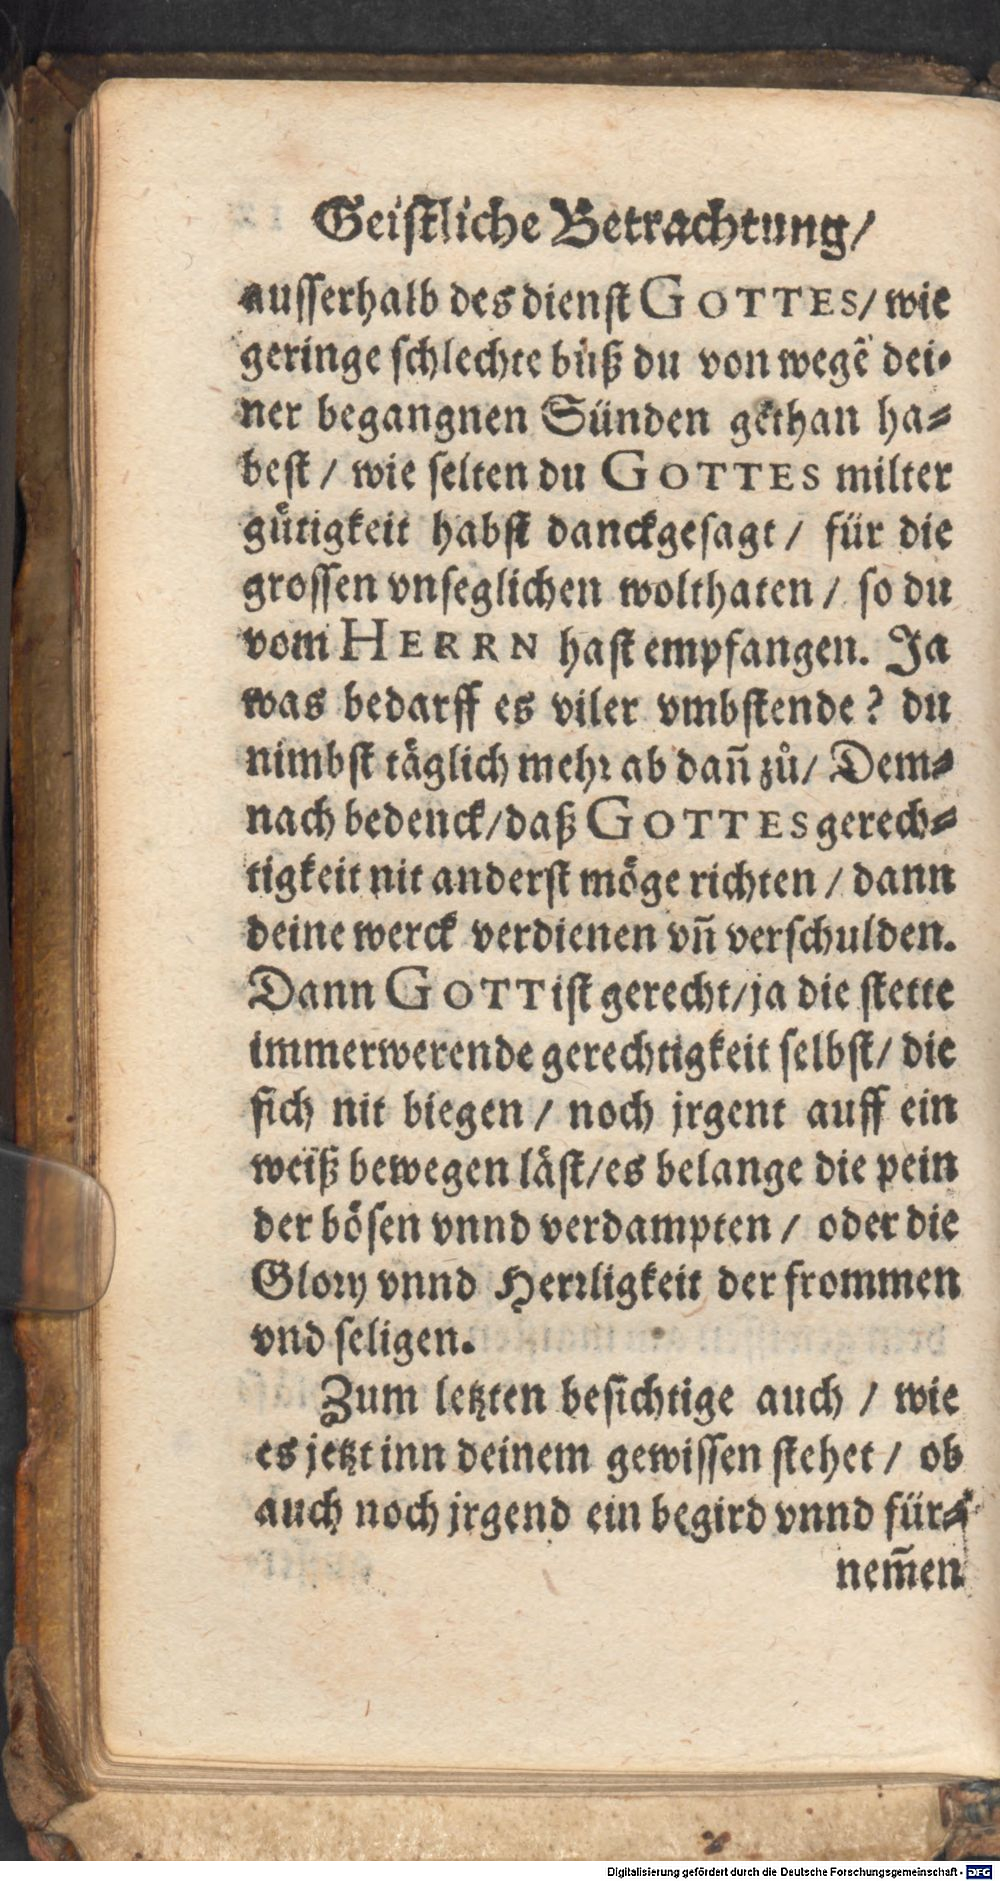 Geistliche Betrachtung/
ausserhalb des dienst GOTTES/ wie
geringe schlechte bůß du von wegẽ dei-
ner begangnen Sünden gethan ha-
best / wie selten du GOTTES milter
gütigkeit habst danckgesagt / für die
grossen vnseglichen wolthaten / so du
vom HERRN hast empfangen. Ja
was bedarff es viler vmbstende? du
nimbst täglich mehr ab dañ zů/ Dem-
nach bedenck/daß GOTTES gerech-
tigkeit nit anderst möge richten / dann
deine werck verdienen vñ verschulden.
Dann GOTT ist gerecht/ja die stette
immerwerende gerechtigkeit selbst/ die
sich nit biegen / noch jrgent auff ein
weiß bewegen läst/es belange die pein
der bösen vnnd verdampten / oder die
Glory vnnd Herrligkeit der frommen
vnd seligen.
Zum letzten besichtige auch / wie
es jetzt inn deinem gewissen stehet / ob
auch noch jrgend ein begird vnnd für-
nem̃en
Digitalisierung gefördert durch die Deutsche Forschungsgemeinschaft - DFG